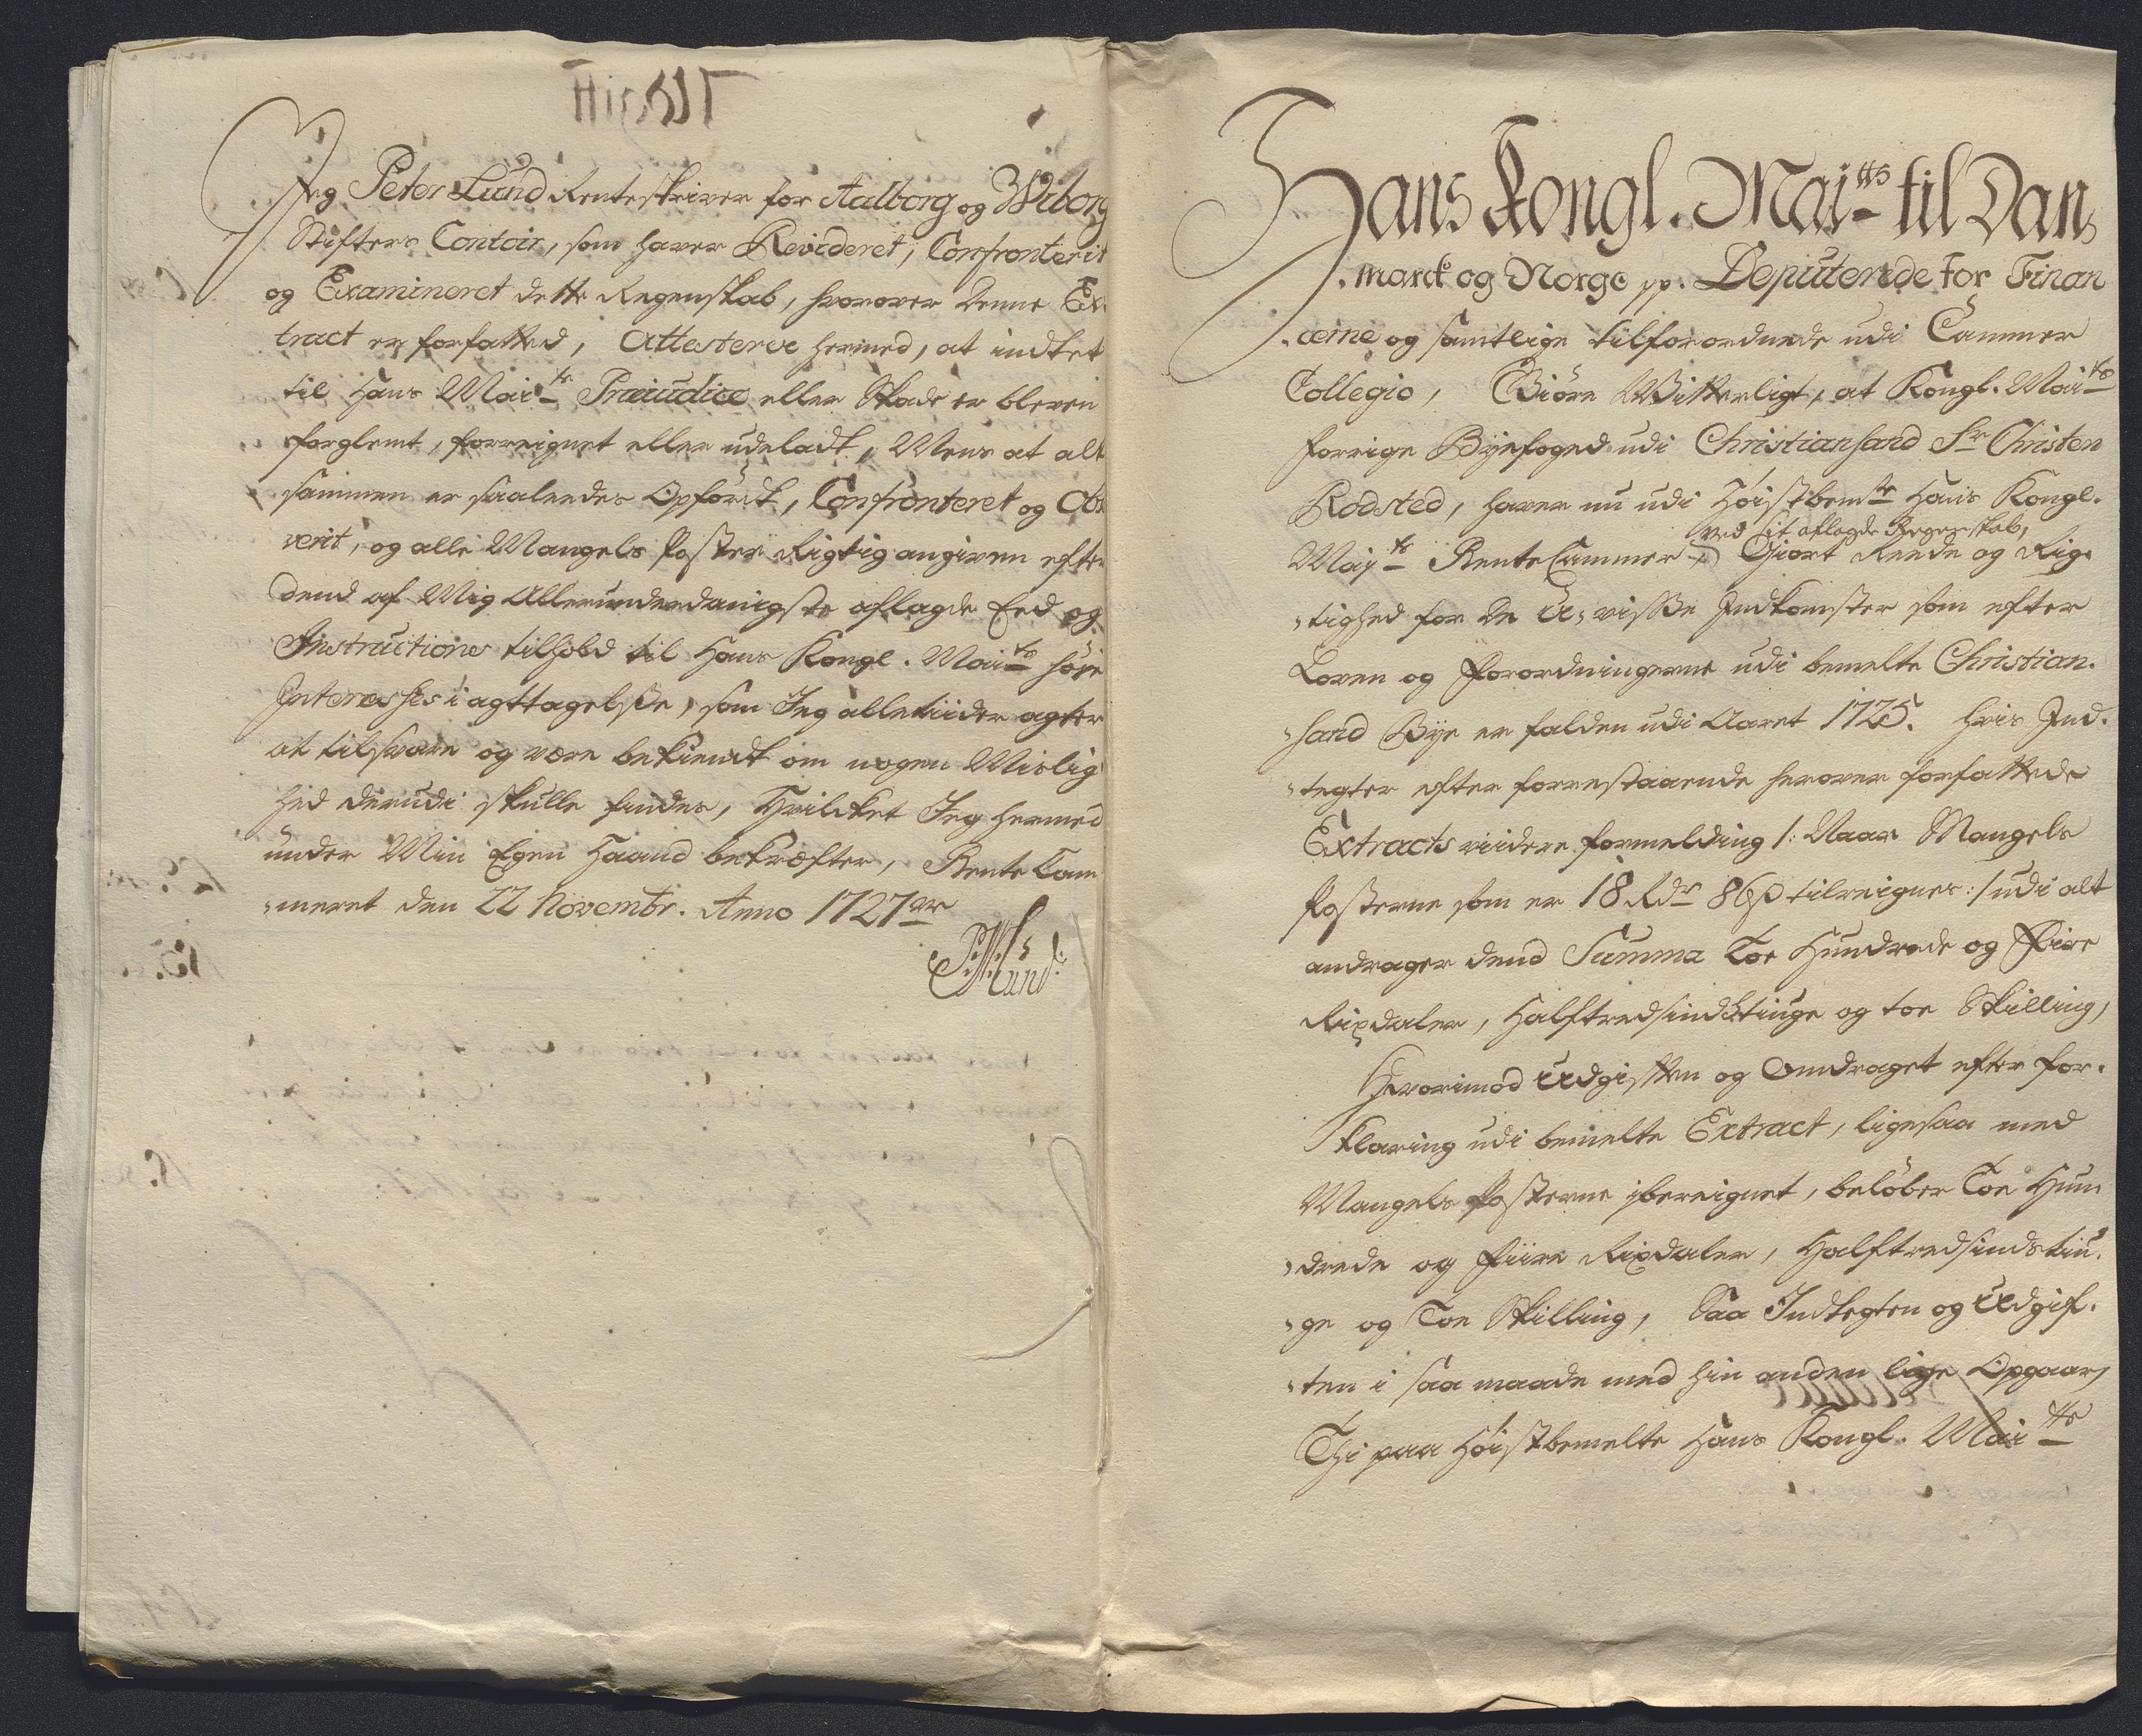 Jeg Peter Lund Renteskriver for Aalborg og Wiborg
Stifters Contoir, som haver Revideret, Confronterit
og Examineret dette Regenskab, hvorover denne Ex
tract er forfatted, Attesterer hermed, at indtet
til Hans Mai.ts Præiudice eller Skade er bleven
forglemt, forreignet eller udeladt, Mens at alt
sammen er saaledes Opfördt, Confronteret og
verit, og alle Mangels Poster Rigtig angiven efter
dend af Mig Allerunderdanigste aflagde Eed og
Instructions tilhold til Hans Kongl. Mai.ts høye
Interesses i agttagelsse, som Jeg alletiider agter
at tilsvare og være bekiendt om nogen Mislig
hed derudi skulle findes, Hvilcket Jeg hermed
under Min Egen Haand bekræfter, Rente Cam
meret den 22 Novembr. Anno 1727
PLund:
Hans Kongl. Mai.tts til Dan,
marck og Norge pp. Deputerede for Finan
cerne og samtlige tilforordnede udi Cammer
Collegio, Giöre Witterligt, at Kongl. Mai.ts
forrige Byefoged udi Christiansand Sr Christen
Rodsted, haver nu udi Höistbem.te Hans Kongl.
ved sit aflagde Regenskab,
May.ts Rente Cammer, Giort Reede og Rig
tighed for de U,visse Indkomster som efter
Loven og Forordningerne udi bemelte Christian.
sand Bye er falden udi Aaret 1725. Hvis Ind.
tegter efter forrestaaende herover forfattede
Extracts viidere formelding /: Naar Mangels
Posterne som er 18 Rdr 86 ß tilreignes :/ udi alt
andrager dend Summa Toe Hundrede og Fiire
Rixdaler, Halftredsindstiuge og toe Skilling,
Hvorimod Udgiften og Omdraget efter for.
klaring udi bemelte Extract, ligesaa med
Mangels Posterne ibereignet, belöber Toe Hun
drede og Fiire Rixdaler, Halftredsindstiu.
ge og Toe Skilling, Saa Indtegten og Udgif.
ten i saa maade med hin anden lige Opgaar,
Thi paa Höistbemelte Hans Kongl. Mai.tts